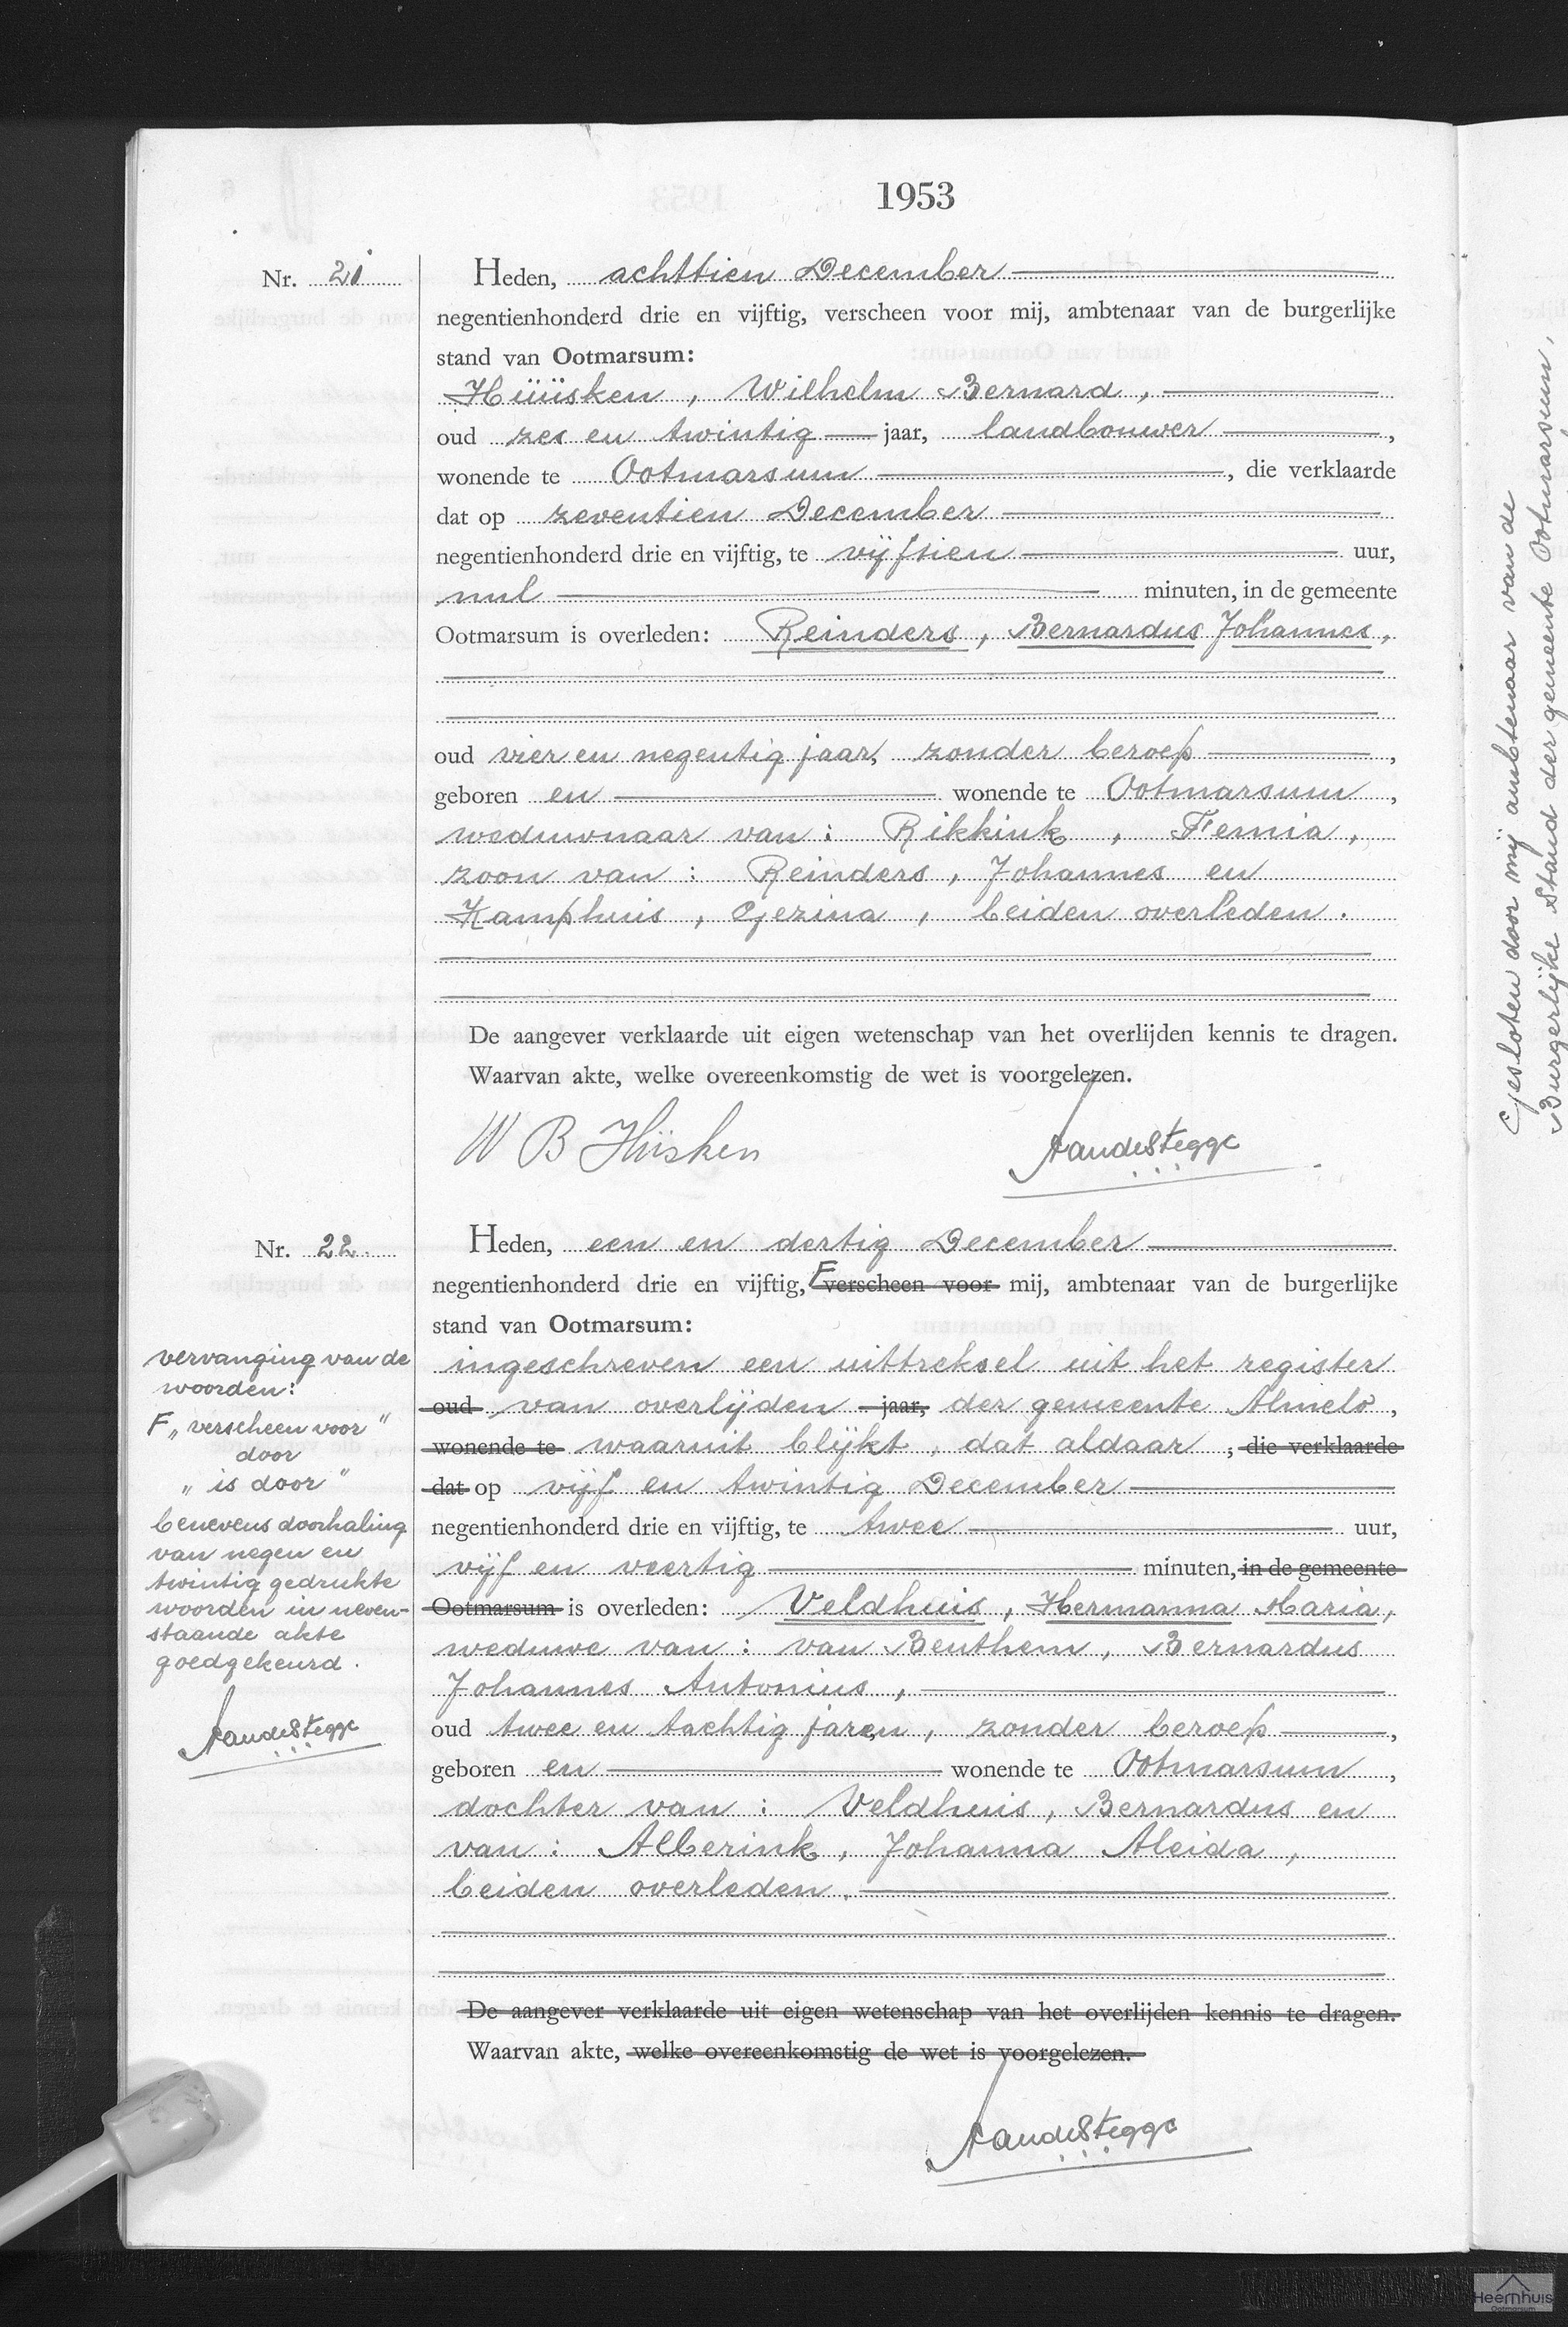 1953
Nr. 21
Heden, achttien December
negentienhonderd drie en vijftig, verscheen voor mij, ambtenaar van de burgerlijke
stand van Ootmarsum:
Hüüsken, Wilhelm Bernard,
oud zes en twintig jaar, landbouwer,
wonende te Ootmarsum, die verklaarde
dat op zeventien December
negentienhonderd drie en vijftig, te vijftien uur,
nul minuten, in de gemeente
Ootmarsum is overleden: Reinders, Bernardus Johannes,
oud vier en negentig jaar, zonder beroep,
geboren en wonende te Ootmarsum,
weduwnaar van: Rikkink, Femia,
zoon van: Reinders, Johannes en
Kamphuis, Gezina, beiden overleden.
De aangever verklaarde uit eigen wetenschap van het overlijden kennis te dragen.
Waarvan akte, welke overeenkomstig de wet is voorgelezen.
W B Hüsken
AandeStegge
Nr. 22.
Heden, een en dertig December
negentienhonderd drie en vijftig, F verscheen voor mij, ambtenaar van de burgerlijke
stand van Ootmarsum:
ingeschreven een uittreksel uit het register
oud van overlijden jaar, der gemeente Almelo,
wonende te waaruit blijkt, dat aldaar, die verklaarde
dat op vijf en twintig December
negentienhonderd drie en vijftig, te twee uur,
vijf en veertig minuten, in de gemeente
Ootmarsum is overleden: Veldhuis, Hermanna Maria,
weduwe van: van Benthem, Bernardus
Johannes Antonius,
oud twee en tachtig jaren, zonder beroep,
geboren en wonende te Ootmarsum,
dochter van: Veldhuis, Bernardus en
van: Alberink, Johanna Aleida,
beiden overleden.
De aangever verklaarde uit eigen wetenschap van het overlijden kennis te dragen.
Waarvan akte, welke overeenkomstig de wet is voorgelezen.
AandeStegge
vervanging van de
woorden:
F „verscheen voor"
door
„is door"
benevens doorhaling
van negen en
twintig gedrukte
woorden in neven-
staande akte
goedgekeurd.
AandeStegge
Gesloten door mij ambtenaar van de
Burgerlijke Stand der gemeente Ootmarsum,
Heemhuis
Ootmarsum